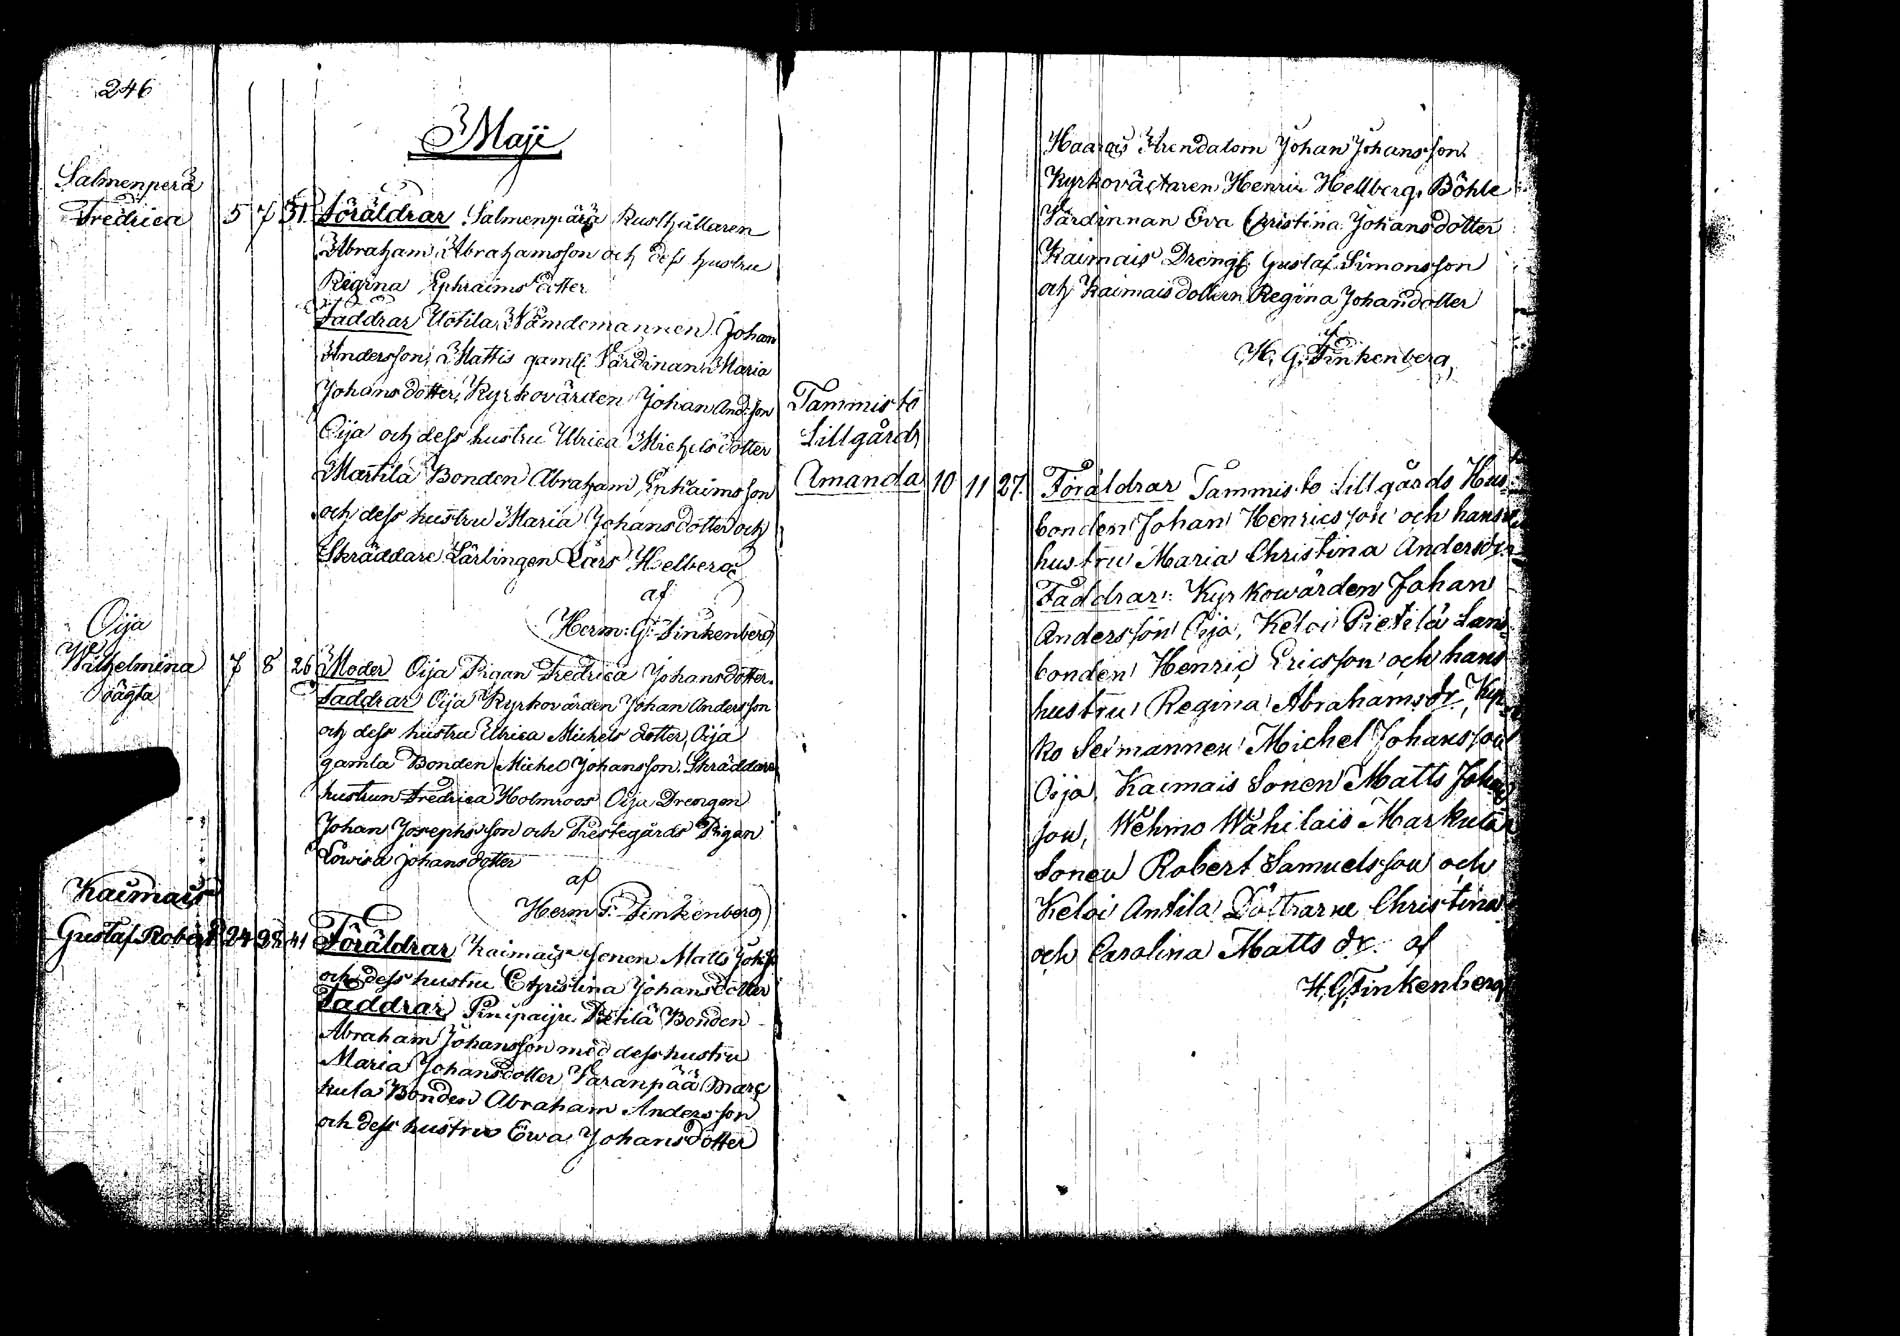 246
Maji
Salmenperä
Fredrica 5 7 31. Föräldrar Salmenpärä Rusthållaren
Abraham Abrahamsson och dess hustru
Regina Ephraims dotter
Faddrar Uotila Nämdemannen Johan
Andersson, Mattis gamle Värdinan Maria
Johansdotter, Kyrkovärden Johan And:son
Oija och dess hustru Ulrica Michelsdotter
Martila Bonden Abraham Ephraimsson
och dess hustru Maria Johansdotter och
Skräddare Lärlingen Lars Helberg
af
Herm: G: Finkenberg
Oija
Wilhelmina 7 8 26 Moder Oija Pigan Fredrica Johansdotter.
oägta
Faddrar Oija Kyrkovärden Johan Andersson
och dess hustru Ulrica Michels dotter, Oija
gamla Bonden Michel Johansson Skräddare
hustrun Fredrica Holmroos Oija Drengen
Johan Josephsson och Prestegårds Pigan
Lovisa Johansdotter
af
Herm G: Finkenberg
Kaimais
Gustaf Robert 24 28 41 Föräldrar Kaimais Sonen Matts Johss
och dess hustru Christina Johansdotter
Faddrar Pinipaiju Pietilä Bonden
Abraham Johansson med dess hustru
Maria Johansdotter, Varanpää Marc
kula Bonden Abraham Andersson
och dess hustru Ewa Johansdotter
Haarais Arendatorn Johan Johansson
Kyrkoväctaren Henric Hellberg, Böhle
Värdinnan Eva Christina Johansdotter
Kaimais Drenge Gustaf Simonsson
och Kaimais dottern Regina Johandotter
af
H. G. Finkenberg,
Tammisto
Lillgårds
Amanda 10 11 27. Föräldrar Tammisto Lillgårds Hus-
bonden Johan Henricsson och hans
hustru Maria Christina Andersdr
Faddrar: Kyrkowärden Johan
Andersson Oija, Keloi Pietilä Land-
bonden Henric Ericsson och hans
hustru Regina Abrahamsdr, Kyr-
ko Sexmannen Michel Johansson
Oija, Kaimais Sonen Matts Johans
son, Wehmo Wähilais Markula
Sonen Robert Samuelsson och
Keloi Antila Döttrarne Christina
och Carolina Matts dr. af
H. G. Finkenberg